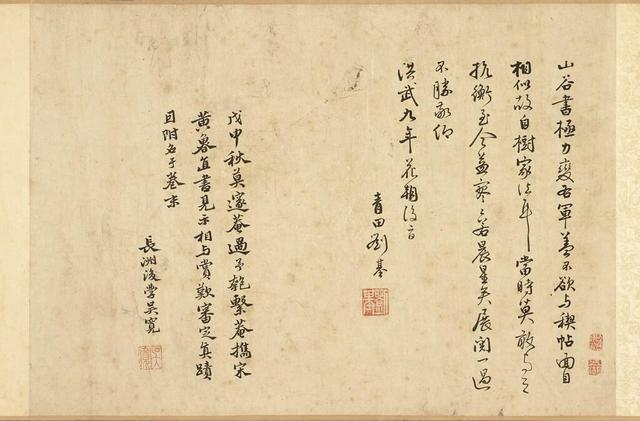 山谷書極力變右軍蓋不欲与稧帖面目
相似故自樹家法耳當時莫敢与之
抗衡至今益寥寥若晨星矣展閱一過
不勝敬仰
洪武九年花朝後一日
青田劉基
戊申秋莫邃菴過予匏繫菴攜宋
黃魯直書見示相与賞歎審定真蹟
因附名于卷末
長洲後學吳寬